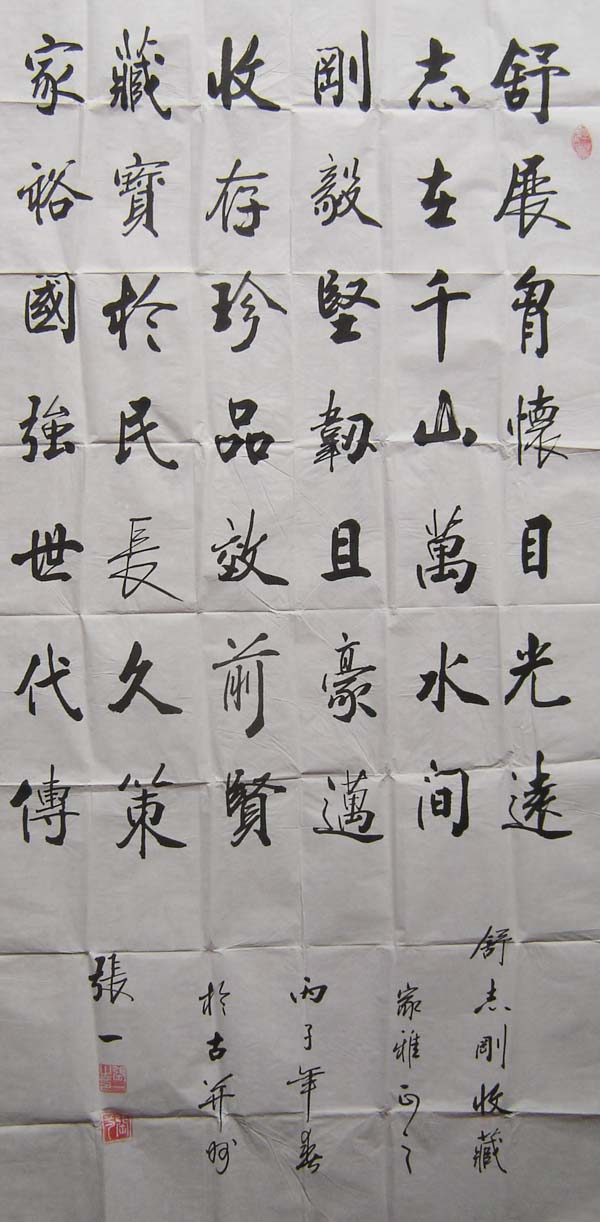 舒展胷懷目光遠
志在千山萬水间
剛毅堅韌且豪邁
收存珍品效前賢
藏寶於民長久策
家裕國強世代傳
舒志剛收藏
家雅正之
丙子年春
於古并州
張一